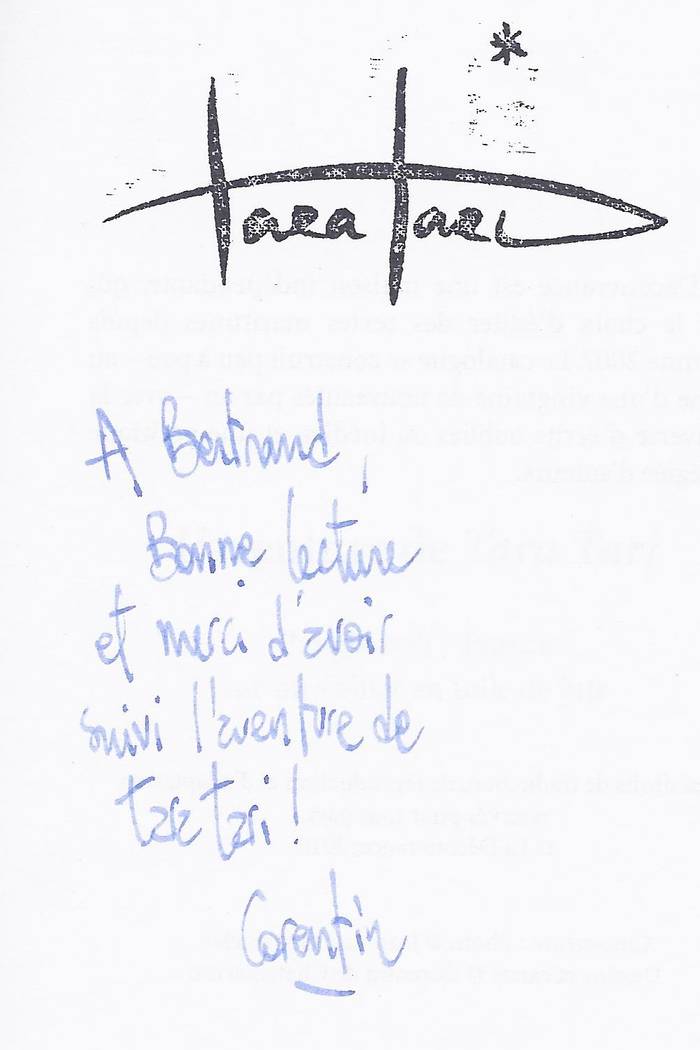 Tara Tari
A Bertrand,
Bonne lecture
et merci d'avoir
suivi l'aventure de
tara tari !
Corentin